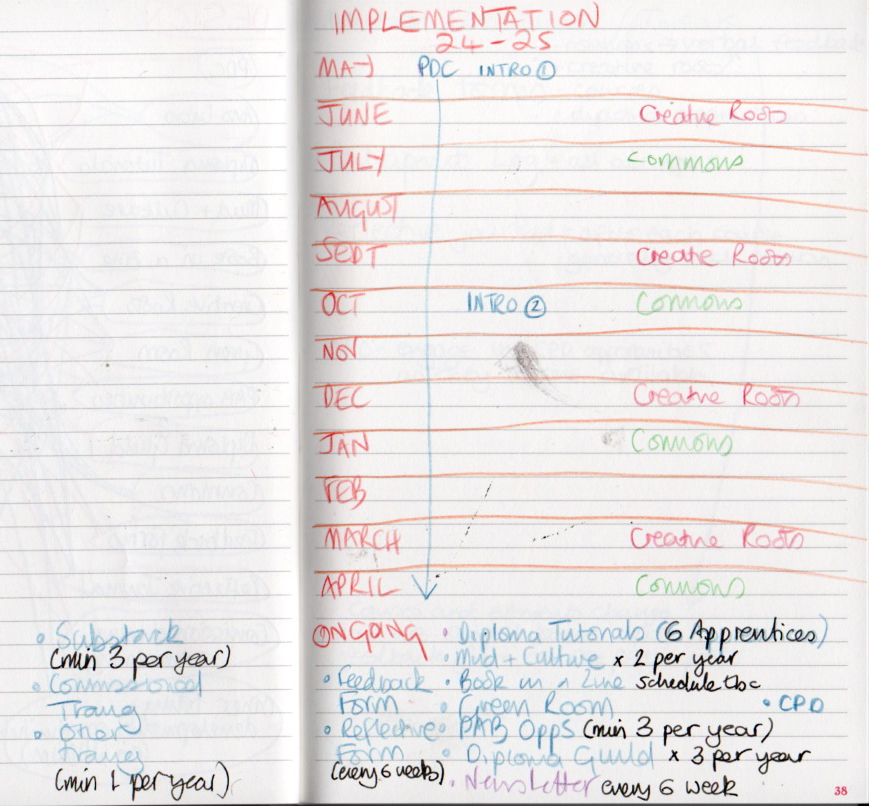 IMPLEMENTATION
24-25
MAY PDC INTRO ①
JUNE Creative Roots
JULY Commons
AUGUST
SEPT Creative Roots
OCT INTRO ② Commons
NOV
DEC Creative Roots
JAN Commons
FEB
MARCH Creative Roots
APRIL Commons
ONGOING • Diploma Tutorials (6 Apprentices)
• Mud + Culture x 2 per year
• Feedback Form
• Book in a Zine schedule tbc
• Green Room
• CPD
• Reflective Form
(every 6 weeks)
• PAB Opps (min 3 per year)
• Diploma Guild x 3 per year
• Newsletter every 6 week
• Substack
(min 3 per year)
• Commissioned
Traing
• Other
Traing
(min 1 per year)
38